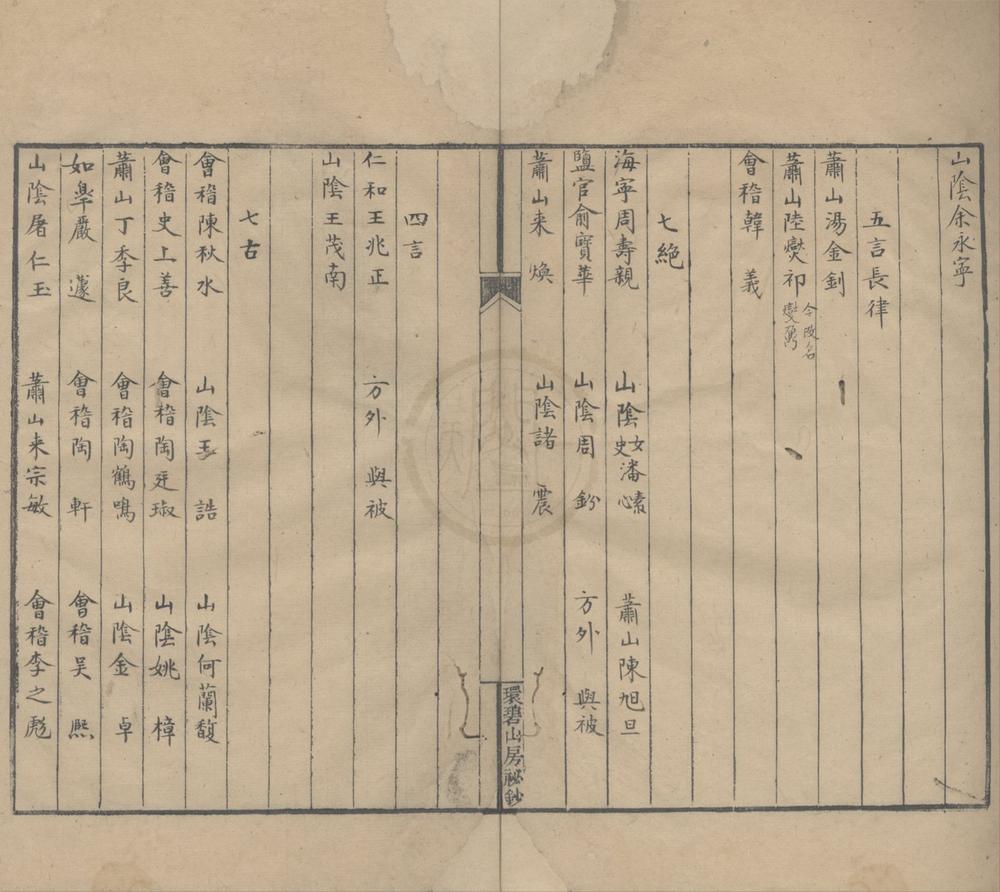 山陰余永寧
五言長律
蕭山湯金釗
蕭山陸爕祁 今改名爕勇
會稽韓 義
七絕
海寧周壽親 山陰女史潘愫 蕭山陳旭旦
鹽官俞寶華 山陰周 鈖 方外 與被
蕭山来 煥 山陰諸 震
環碧山房祕鈔
四言
仁和王兆正 方外 與被
山陰王茂南
七古
會稽陳秋水 山陰王 誥 山陰何蘭馥
會稽史上善 會稽陶廷琡 山陰姚 樟
蕭山丁季良 會稽陶鶴鳴 山陰金 卓
如臯嚴 蘧 會稽陶 軒 會稽吴 熈
山陰屠仁玉 蕭山来宗敏 會稽李之彪